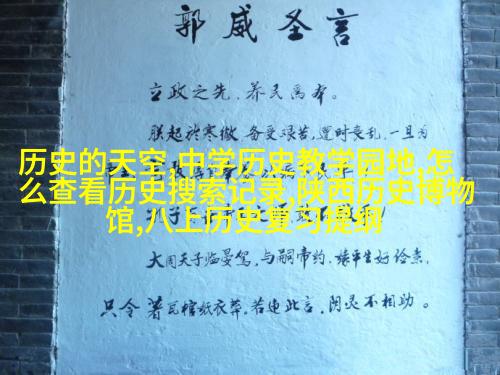 郭威圣言
立政之先,养民爲本。
朕起於寒微,备受艰苦,遭时丧乱,一旦为
历史的天空,中学历史教学园地,怎
么查看历史搜索记录,陕西历史博物
馆,八上历史复习提纲
大周天子临晏驾,与嗣帝约,缘平生好俭素,
只令著瓦棺纸衣葬,若违此言,阴灵不相助。